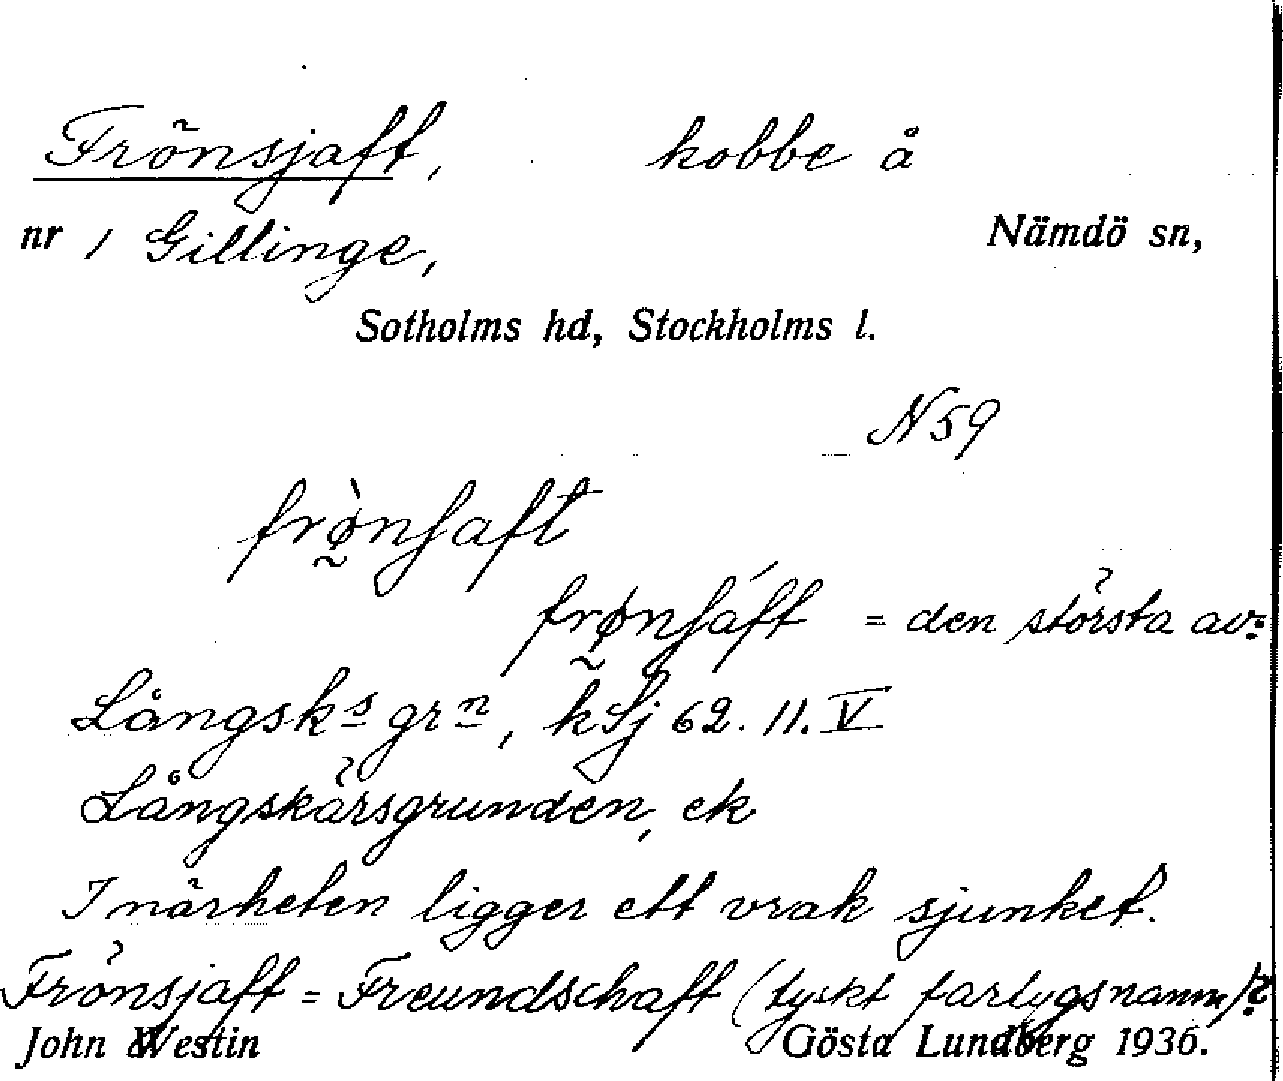 Frönsjaft, kobbe å
nr 1 Gillinge, Nämdö sn,
Sotholms hd, Stockholms l.
N 59
frø̀nʃaft
frønʃáft = den största av:
Långsks grn, kSj 62. 11. V
Långskärsgrunden, ek
I närheten ligger ett vrak sjunket.
Frönsjaft = Freundschaft (tyskt fartygsnamn)?
John Westin Gösta Lundberg 1936.